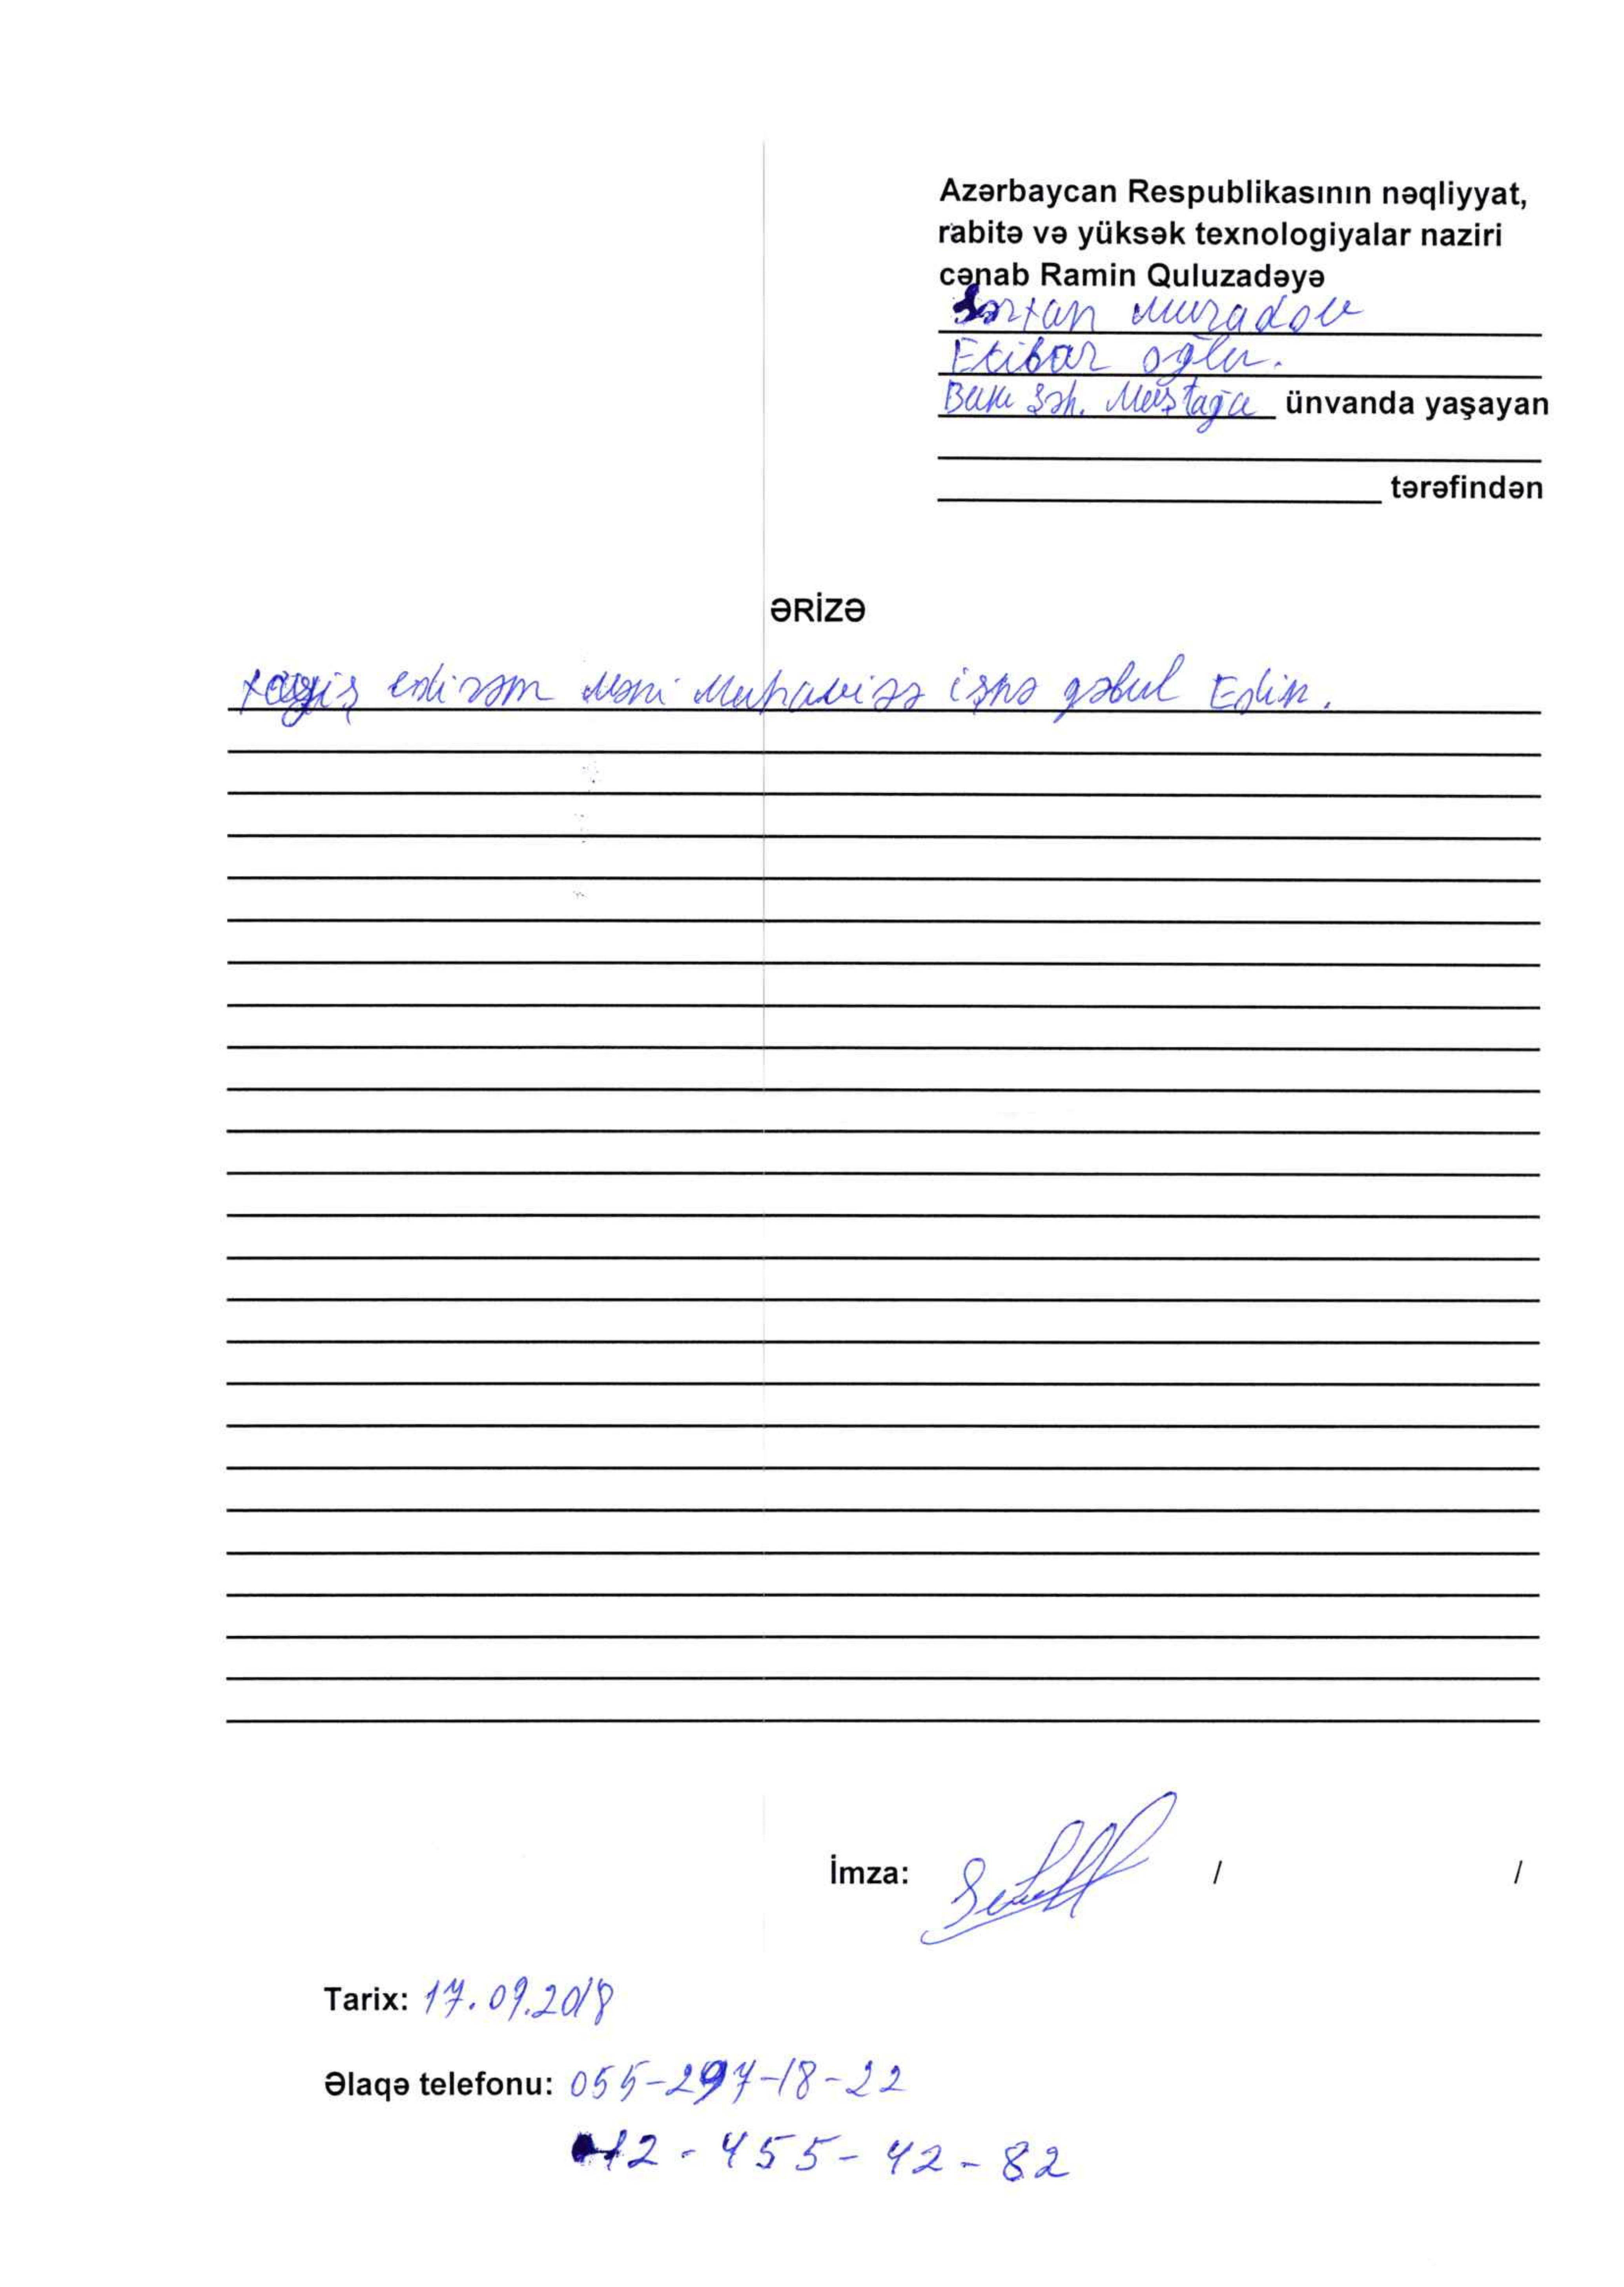 Azərbaycan Respublikasının nəqliyyat,
rabitə və yüksək texnologiyalar naziri
cənab Ramin Quluzadəyə
Sərxan Muradov
Etibar oğlu.
Bakı şəh. Maştağa ünvanda yaşayan
tərəfindən
ƏRİZƏ
xayiş edirəm Məni Muhavizə işnə qəbul Edin.
İmza: / /
Tarix: 17.09.2018
Əlaqə telefonu: 055-297-18-22
012-455-42-82